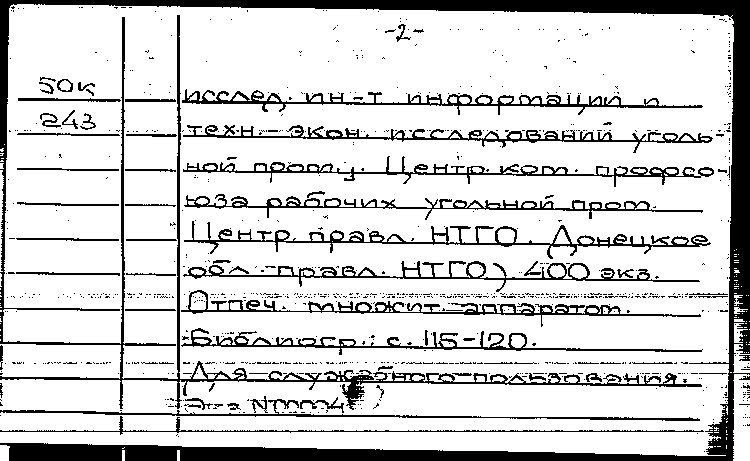 -2-
50к
243
исслед. ин-т информации и
техн.-экон. исследований уголь-
ной пром., Центр. ком. профсо-
юза рабочих угольной пром.
Центр. правл. НТГО. (Донецкое
обл. правл. НТГО) 400 экз.
Отпеч. множит. аппаратом.
Библиогр.: с. 115-120.
Для служебного пользования.